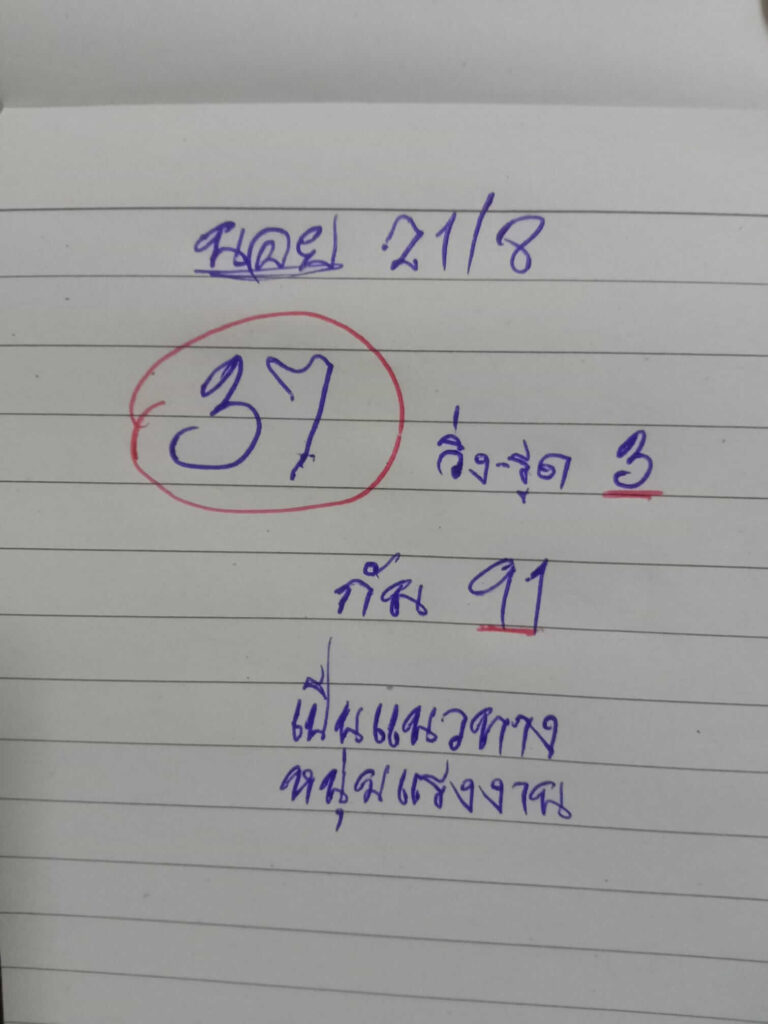 นอย 21/8
37
วิ่ง-รูด 3
กัน 91
เป็นแนวทาง
หนุ่มแรงงาน